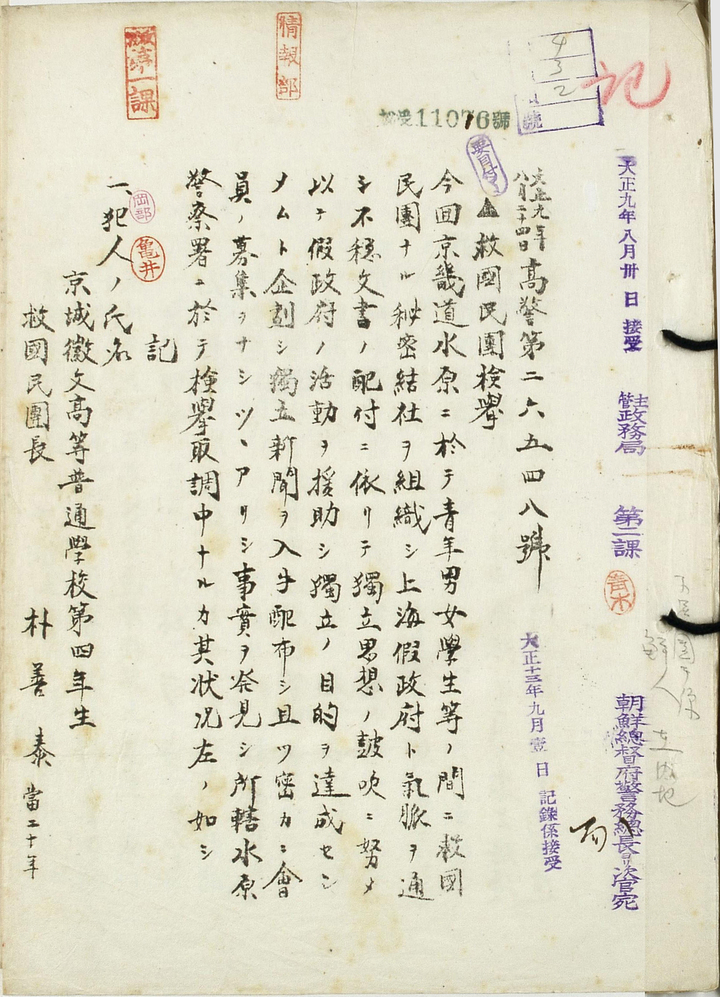 記
大正九年八月卅日接受
主管政務局 第二課
青木
朝鮮總督府警務總長ヨリ次官宛
大正十三年九月壹日 記錄係接受
4
3
2
情報部
第一課
11076號
大正九年
八月二十四日 高警第二六五四八號
要目付
救國民團検擧
今回京畿道水原ニ於テ青年男女學生等ノ間ニ救國
民團ナル秘密結社ヲ組織シ上海假政府ト氣脈ヲ通
シ不穏文書ノ配付ニ依リテ獨立思想ノ鼓吹ニ努メ
以テ假政府ノ活動ヲ援助シ獨立ノ目的ヲ達成セシ
メムト企劃シ獨立新聞ヲ入手配布シ且ツ密カニ會
員ノ募集ヲナシツヽアリシ事實ヲ発見シ所轄水原
警察署ニ於テ検擧取調中ナルカ其状況左ノ如シ
岡部
亀井
記
一、犯人ノ氏名
京城徽文高等普通學校第四年生
救國民團長 朴善泰 當二十年